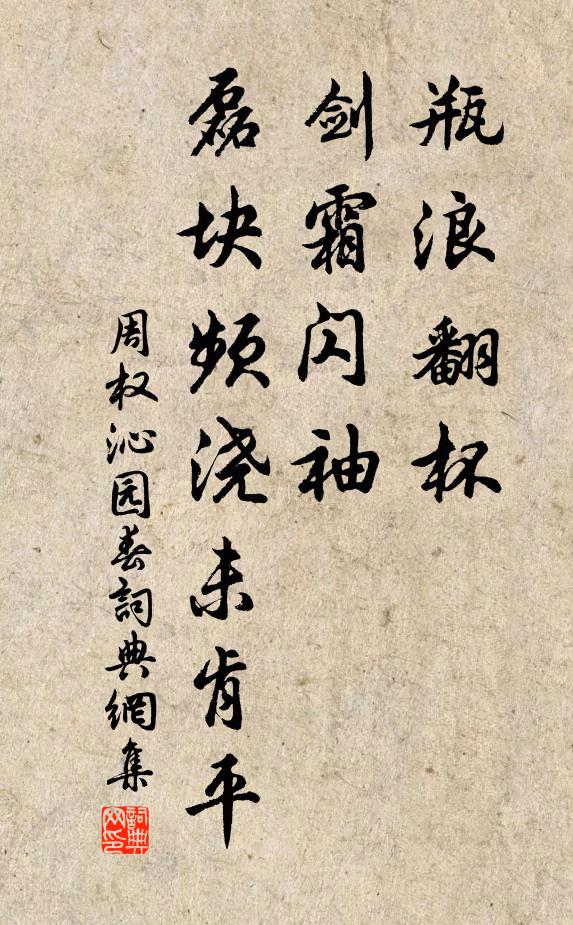 瓶浪翻杯
剑霜闪袖
磊块频浇未肯平
周权沁园春詞典網集
詞典网印